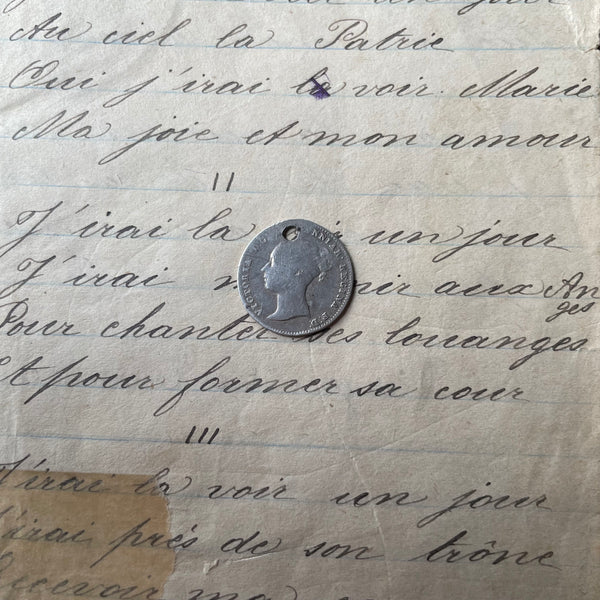 Au ciel la Patrie
Oui j'irai la voir Marie
Ma joie et mon amour
II
J'irai la un jour
J'irai aux Anges
Pour chanter ses louanges
Et pour former sa cour
III
J'irai la voir un jour
J'irai près de son trône
Recevoir ma
VICTORIA REGINA